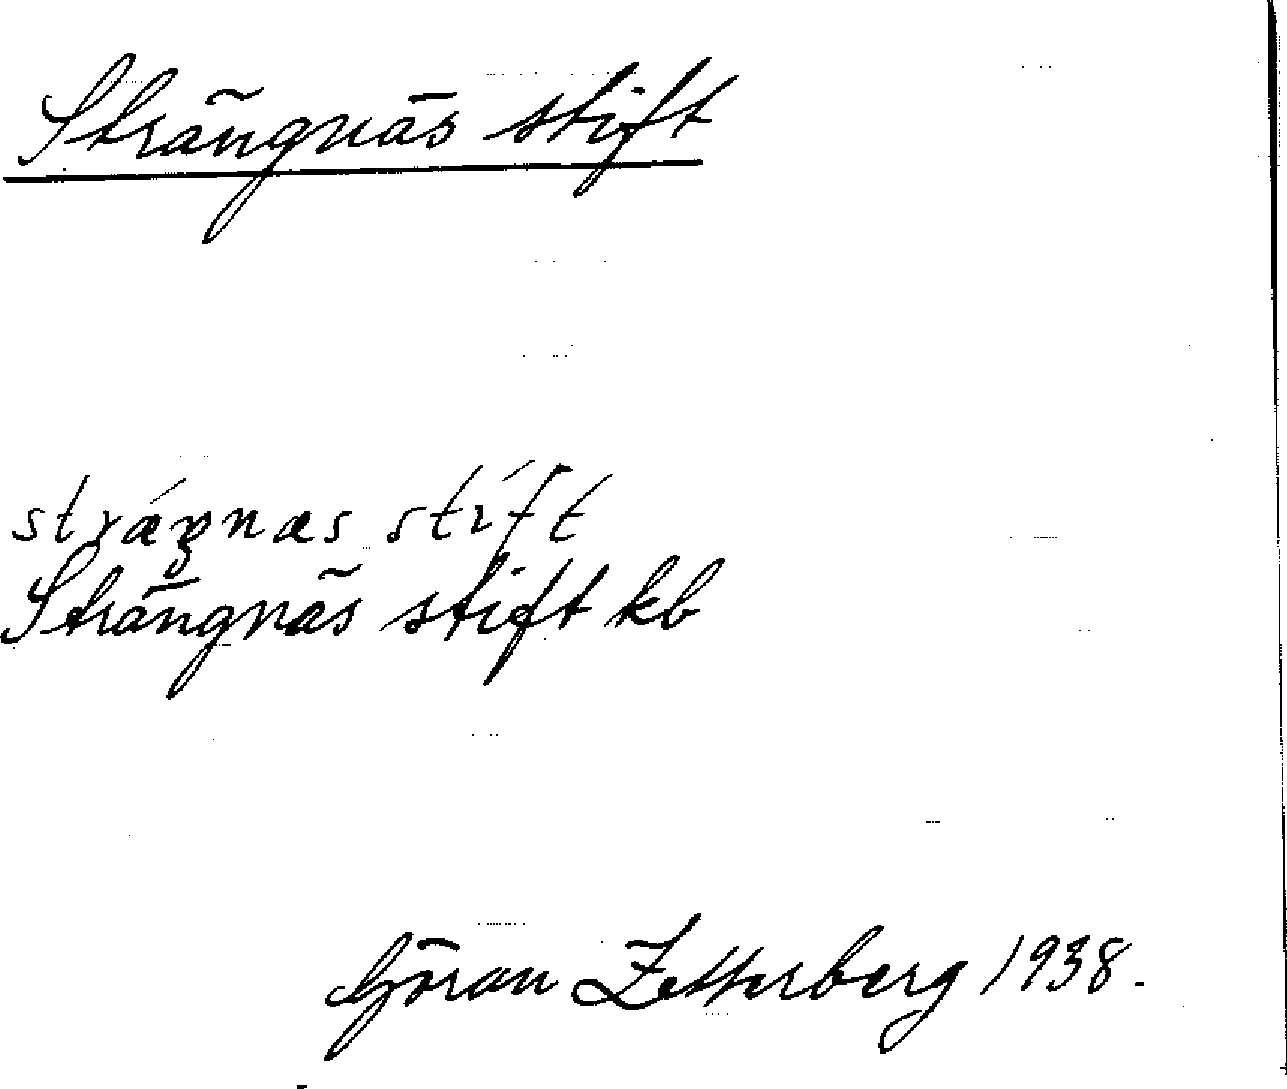 Strängnäs stift
strǽŋnæs stíft
Strängnäs stift kb
Göran Zetterberg 1938.